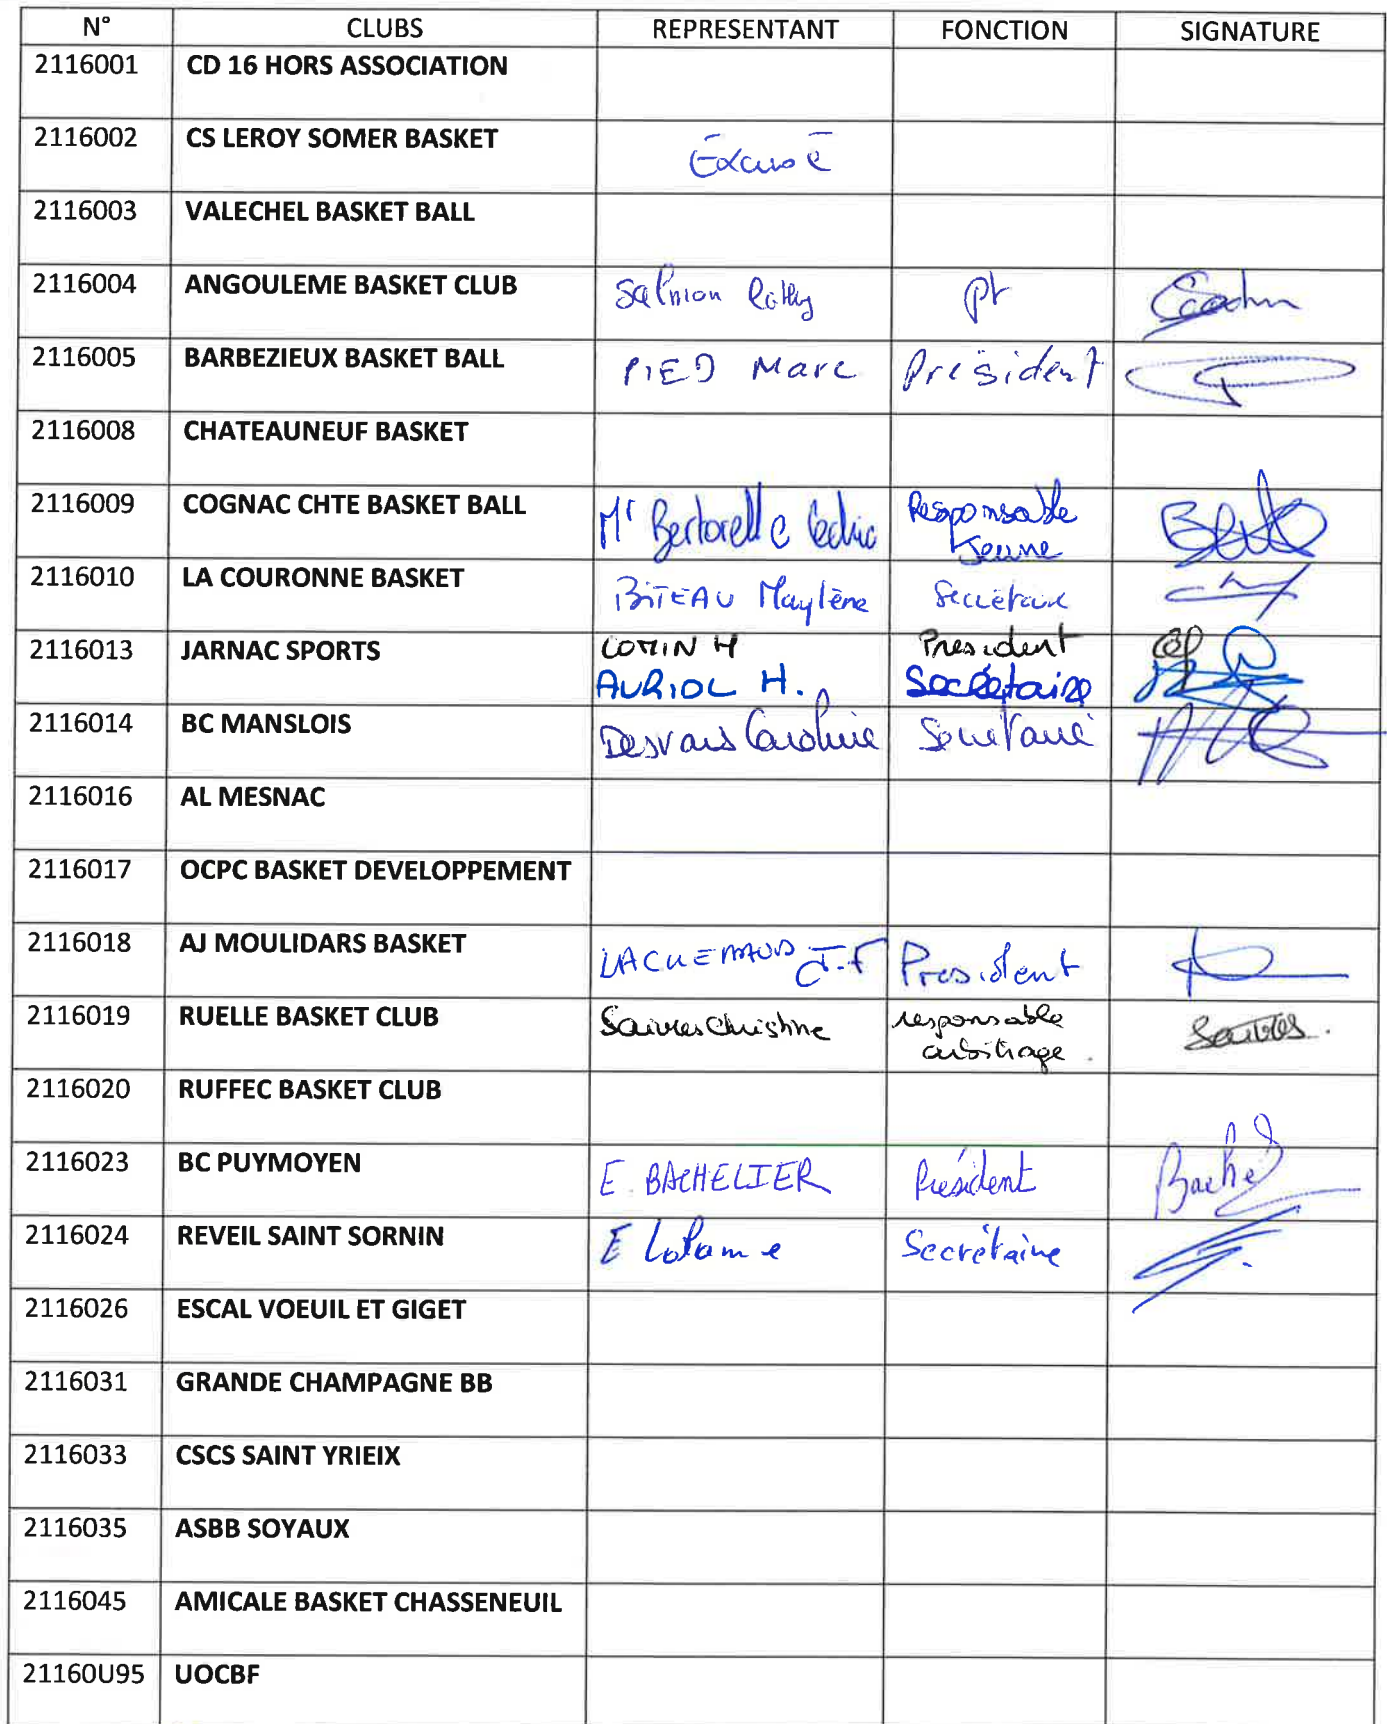 N° CLUBS REPRESENTANT FONCTION SIGNATURE
2116001 CD 16 HORS ASSOCIATION
2116002 CS LEROY SOMER BASKET Excusé
2116003 VALECHEL BASKET BALL
2116004 ANGOULEME BASKET CLUB Salmon Cathy Pt
2116005 BARBEZIEUX BASKET BALL PIED Marc Président
2116008 CHATEAUNEUF BASKET
2116009 COGNAC CHTE BASKET BALL Mr Bertorelle Cedric Responsable
Jeune
2116010 LA COURONNE BASKET BITEAU Maylène Secrétaire
2116013 JARNAC SPORTS COMIN H President
AURIOL H. Secrétaire
2116014 BC MANSLOIS Desvars Caroline Secrétaire
2116016 AL MESNAC
2116017 OCPC BASKET DEVELOPPEMENT
2116018 AJ MOULIDARS BASKET J.F President
2116019 RUELLE BASKET CLUB Saivres Christine responsable Saivres.
arbitrage.
2116020 RUFFEC BASKET CLUB
2116023 BC PUYMOYEN E. BACHELIER Président Bachel
2116024 REVEIL SAINT SORNIN E Secrétaire
2116026 ESCAL VOEUIL ET GIGET
2116031 GRANDE CHAMPAGNE BB
2116033 CSCS SAINT YRIEIX
2116035 ASBB SOYAUX
2116045 AMICALE BASKET CHASSENEUIL
21160U95 UOCBF